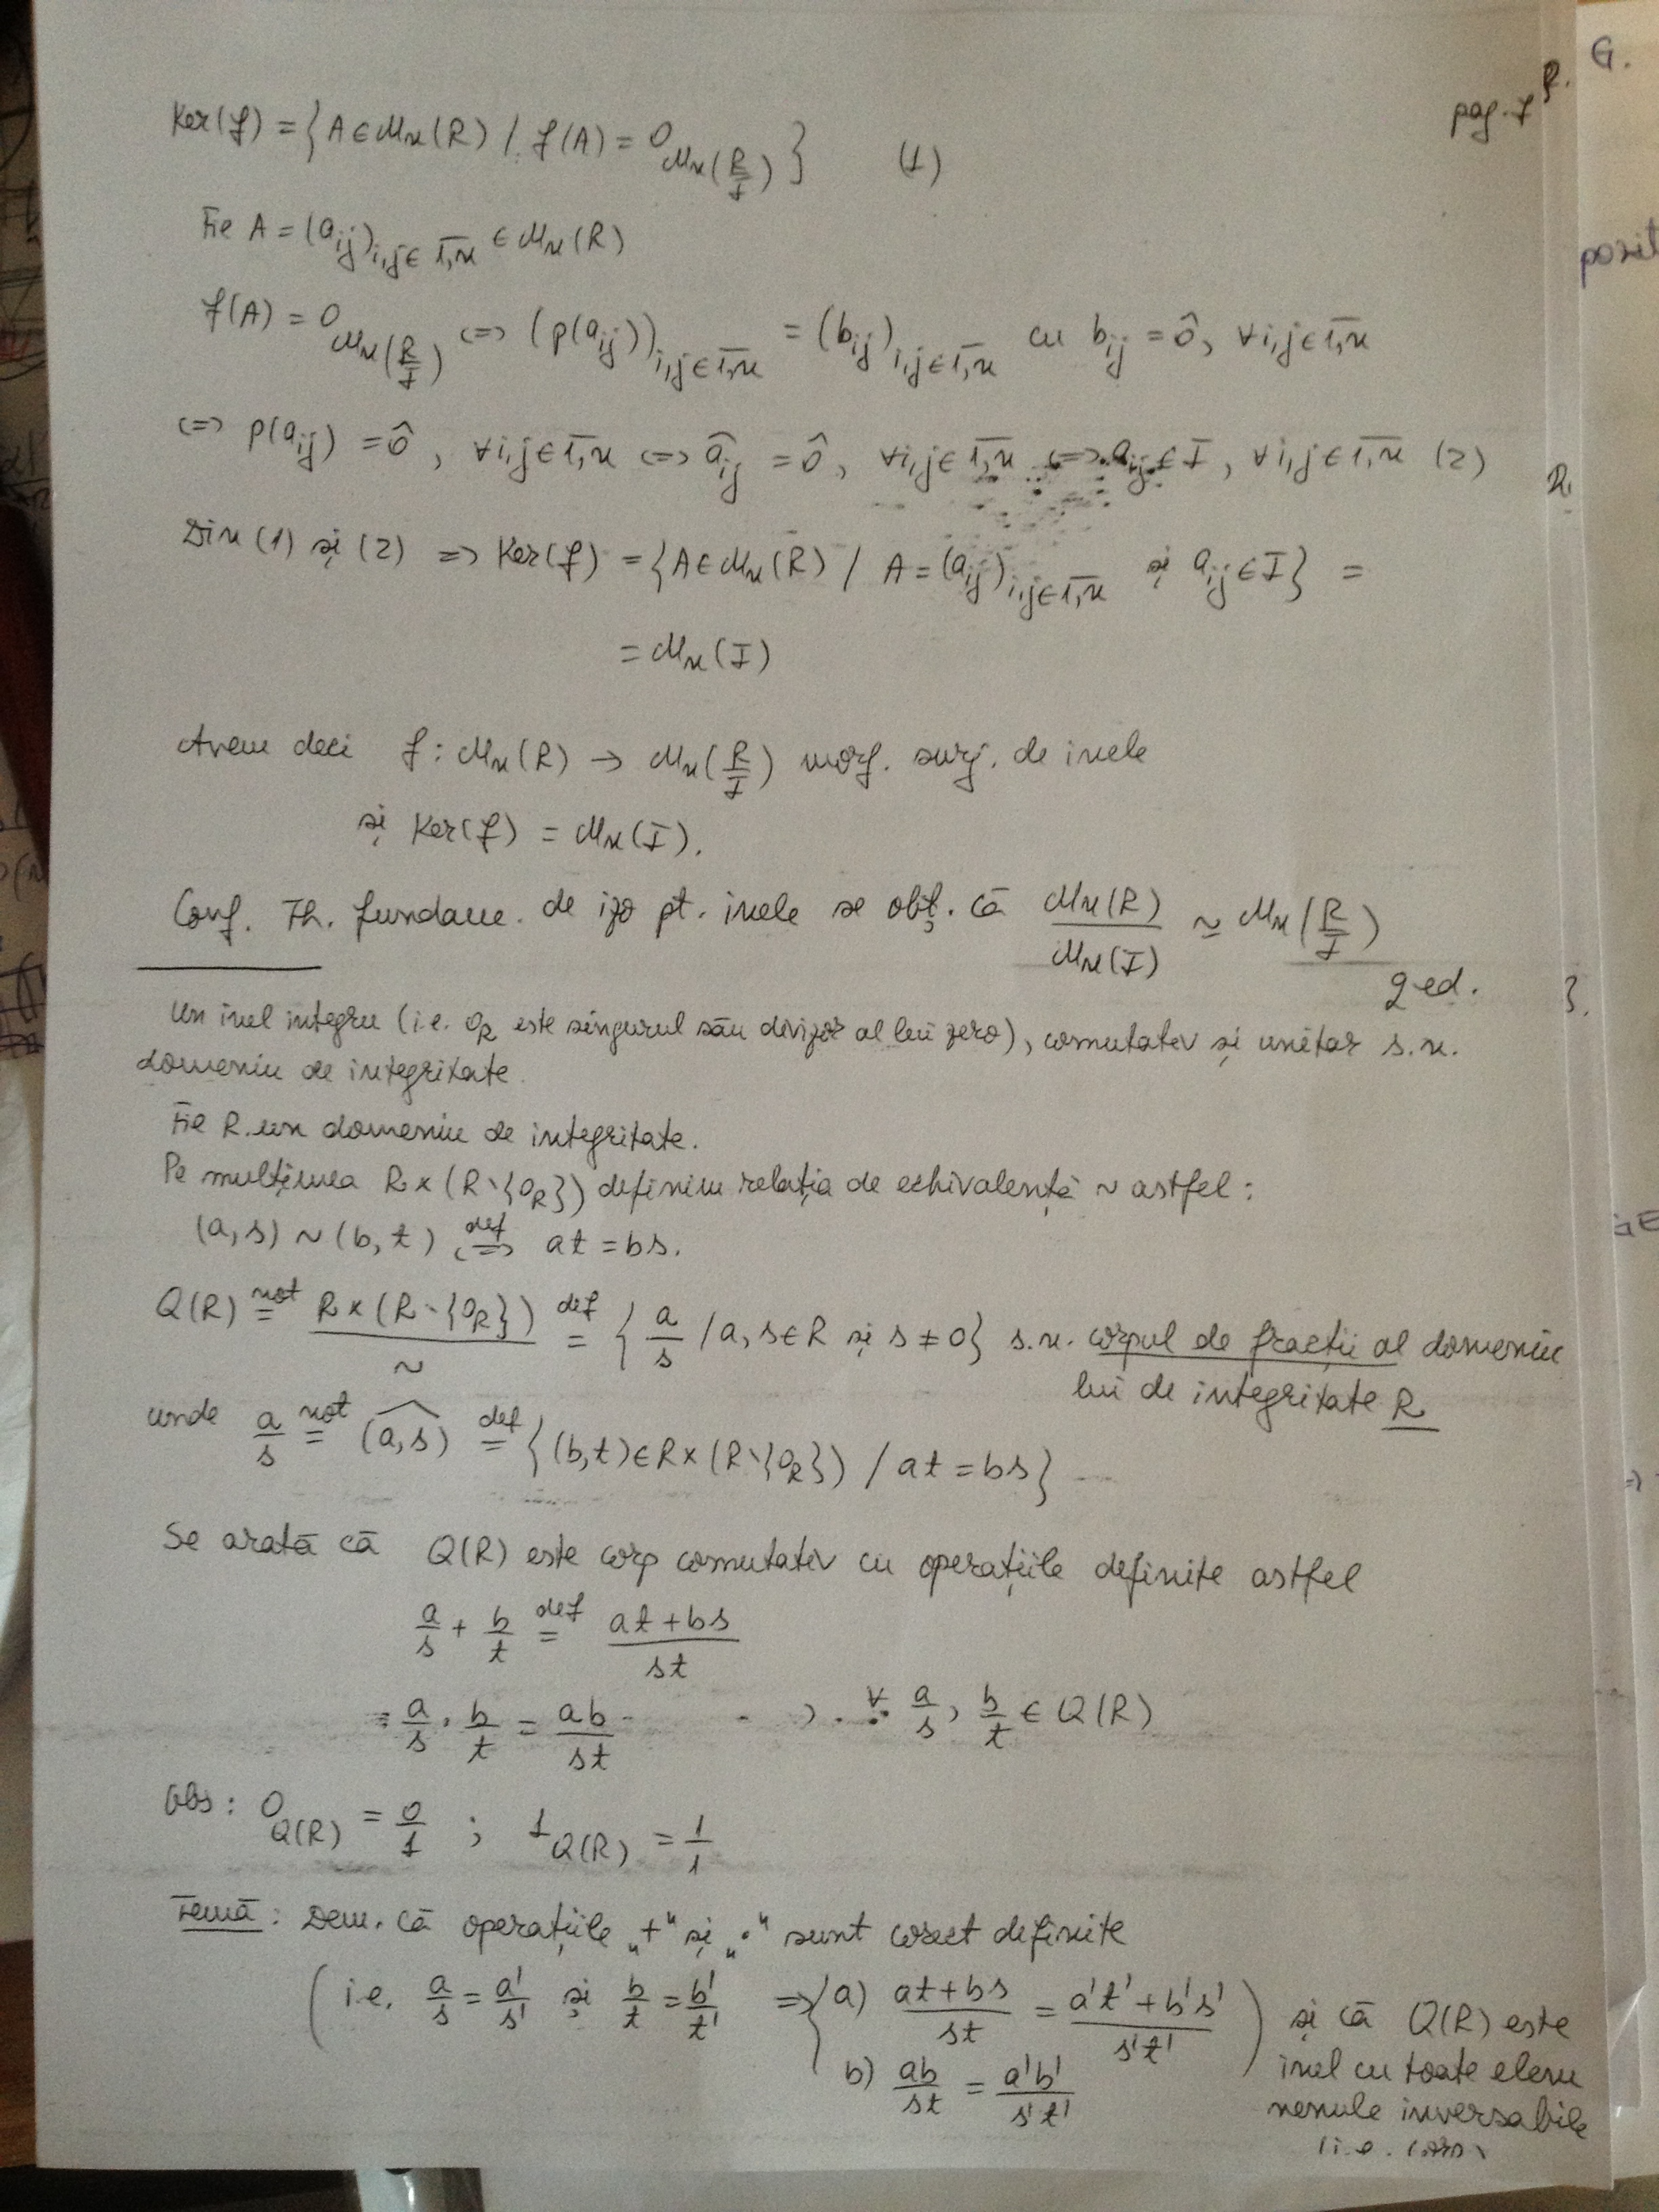 pag. 7
Ker(f) = {A ∈ Mn(R) / f(A) = 0_{Mn(R/I)}} (1)
Fie A = (a_ij)_{i,j∈1,n} ∈ Mn(R)
f(A) = 0_{Mn(R/I)} <=> (p(a_ij))_{i,j∈1,n} = (b_ij)_{i,j∈1,n} cu b_ij = ô, ∀i,j∈1,n
<=> p(a_ij) = ô, ∀i,j∈1,n <=> â_ij = ô, ∀i,j∈1,n <=> a_ij ∈ I, ∀i,j∈1,n (2)
Din (1) și (2) => Ker(f) = {A∈Mn(R) / A = (a_ij)_{i,j∈1,n} și a_ij ∈ I} =
= Mn(I)
Avem deci f : Mn(R) → Mn(R/I) morf. surj. de inele
și Ker(f) = Mn(I).
Conf. Th. fundam. de izo pt. inele se obț. că Mn(R)/Mn(I) ≃ Mn(R/I)
qed.
Un inel integru (i.e. 0_R este singurul său divizor al lui zero), comutativ și unitar s.n.
domeniu de integritate.
Fie R un domeniu de integritate.
Pe mulțimea R×(R\{0_R}) definim relația de echivalență ~ astfel:
(a,s) ~ (b,t) <=>^{def} at = bs.
Q(R) =^{not} R×(R\{0_R})/~ =^{def} {a/s / a,s∈R și s ≠ 0} s.n. corpul de fracții al domeniu
lui de integritate R
unde a/s =^{not} (a,s)^ =^{def} {(b,t)∈R×(R\{0_R}) / at = bs}
Se arată că Q(R) este corp comutativ cu operațiile definite astfel
a/s + b/t =^{def} (at+bs)/st
a/s · b/t = ab/st , ∀ a/s, b/t ∈ Q(R)
Obs: 0_{Q(R)} = 0/1 ; 1_{Q(R)} = 1/1
Temă: Dem. că operațiile „+" și „·" sunt corect definite
(i.e. a/s = a'/s' și b/t = b'/t' => { a) (at+bs)/st = (a't'+b's')/s't' ) și că Q(R) este
b) ab/st = a'b'/s't' inel cu toate elem
nenule inversabile
(i.e. corp)